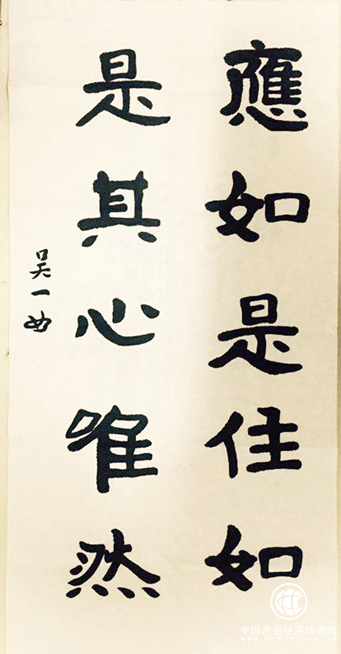 應如是住如
是其心唯然
吴一
中国产业经济信息网